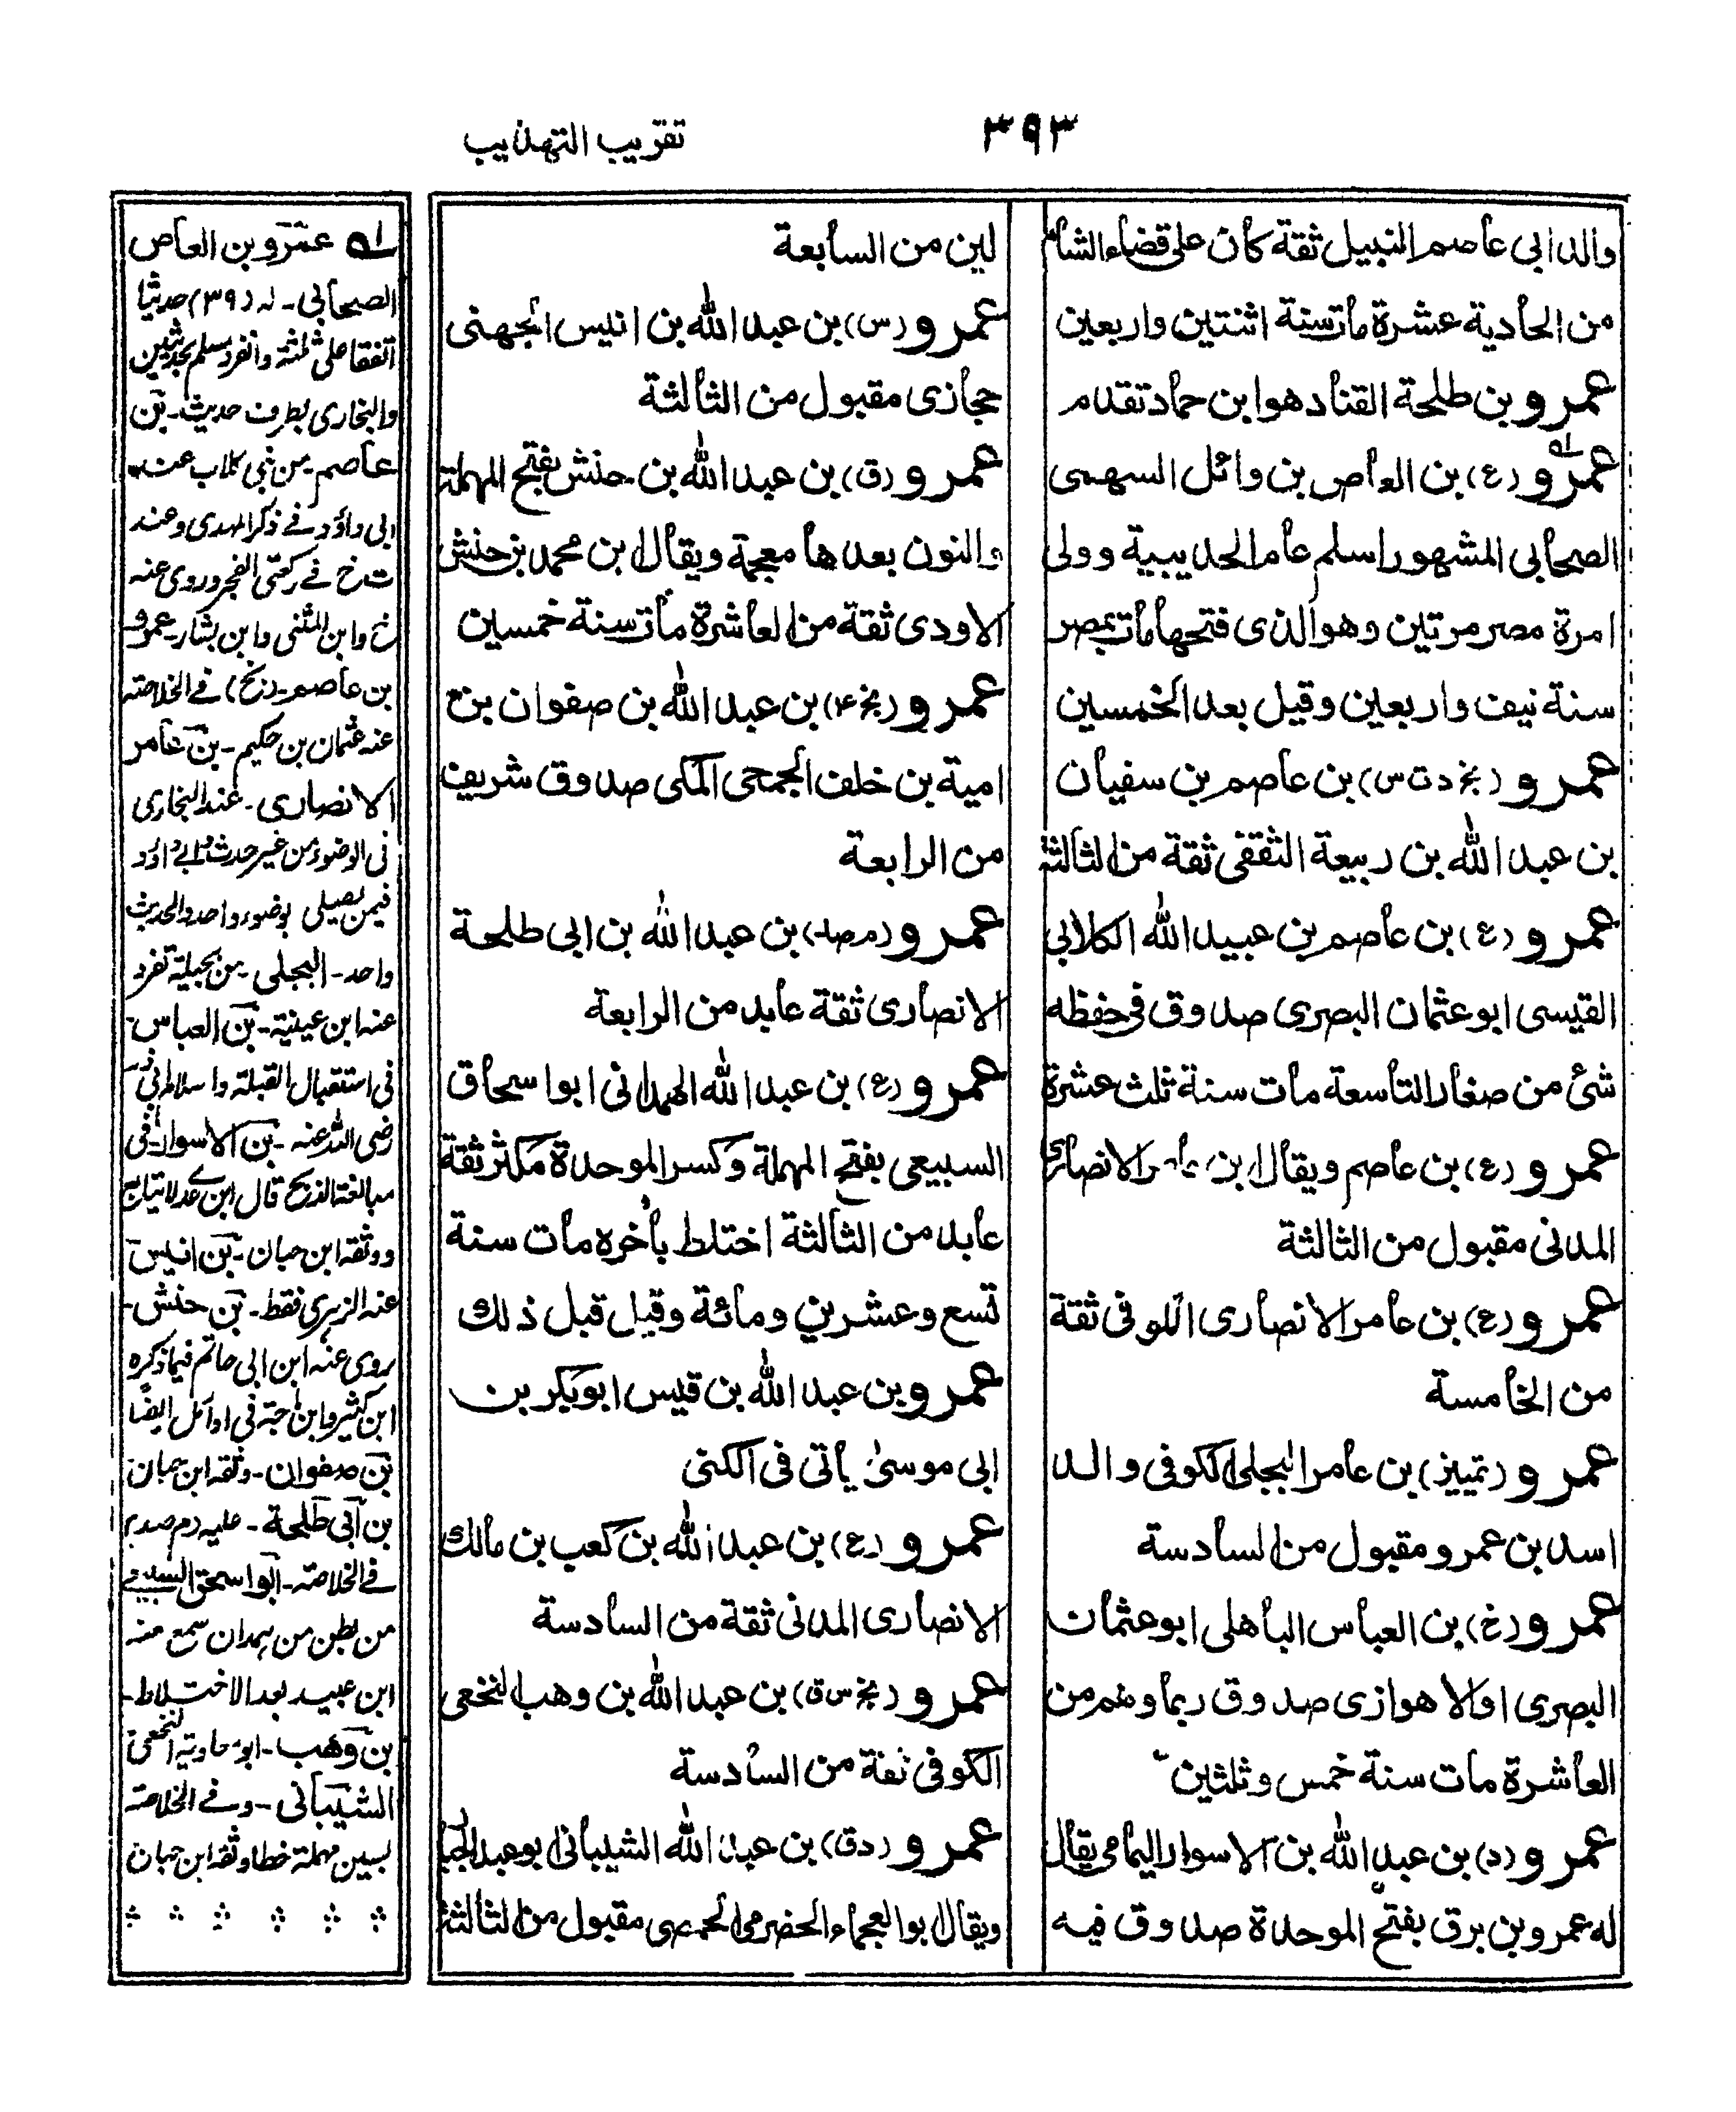 ٣٩٣
تقريب التهذيب
والد ابي عاصم النبيل ثقة كان على قضاء الشام
من الحادية عشرة مات سنة اثنتين واربعين
عمرو بن طلحة القناد هو ابن حماد تقدم
عمرو (ع) بن العاص بن وائل السهمى
الصحابي المشهور اسلم عام الحديبية وولى
امرة مصر مرتين وهو الذى فتحها مات بمصر
سنة نيف واربعين وقيل بعد الخمسين
عمرو (بخ د ت س) بن عاصم بن سفيان
بن عبد الله بن ربيعة الثقفى ثقة من الثالثة
عمرو (ع) بن عاصم بن عبيد الله الكلابي
القيسى ابو عثمان البصري صدوق في حفظه
شئ من صغار التاسعة مات سنة ثلث عشرة
عمرو (ع) بن عاصم ويقال ابن عامر الانصارى
المدنى مقبول من الثالثة
عمرو (ع) بن عامر الانصارى الكوفى ثقة
من الخامسة
عمرو (تمييز) بن عامر البجلى الكوفى والد
اسد بن عمرو مقبول من السادسة
عمرو (خ) بن العباس الباهلى ابو عثمان
البصرى او الاهوازى صدوق ربما وهم من
العاشرة مات سنة خمس وثلثين
عمرو (د) بن عبد الله بن الاسوار اليمامى يقال
له عمرو بن برق بفتح الموحدة صدوق فيه
لين من السابعة
عمرو (س) بن عبد الله بن انيس الجهنى
حجازى مقبول من الثالثة
عمرو (ق) بن عبد الله بن حنش بفتح المهملة
والنون بعدها معجمة ويقال ابن محمد بن حنش
الاودى ثقة من العاشرة مات سنة خمسين
عمرو (بخ ٤) بن عبد الله بن صفوان بن
امية بن خلف الجمحى المكى صدوق شريف
من الرابعة
عمرو (م صد) بن عبد الله بن ابى طلحة
الانصارى ثقة عابد من الرابعة
عمرو (ع) بن عبد الله الهمدانى ابو اسحاق
السبيعى بفتح المهملة وكسر الموحدة مكثر ثقة
عابد من الثالثة اختلط بأخره مات سنة
تسع وعشرين ومائة وقيل قبل ذلك
عمرو بن عبد الله بن قيس ابو بكر بن
ابى موسىٰ يأتى فى الكنى
عمرو (ع) بن عبد الله بن كعب بن مالك
الانصارى المدنى ثقة من السادسة
عمرو (بخ س ق) بن عبد الله بن وهب النخعى
الكوفى ثقة من السادسة
عمرو (د ق) بن عبد الله الشيبانى ابو عبد الجبار
ويقال ابو العجماء الحضرمى الحمصى مقبول من الثالثة
له عمرو بن العاص
الصحابي - له (٣٩) حديثا
اتفقا على ثلثة وانفرد مسلم بحديثين
والبخارى بطرف حديث - بن
عاصم - من بنى كلاب عنه
ابى داؤد فے ذكر المهدى وعند
ت خ فے ركعتى الفجر وروى عنه
خ وابن المثنى وابن بشار - عمرو
بن عاصم - (بخ) فے الخلاصة
عنه عثمان بن حكيم - بن عامر
الانصارى - عند البخارى
فى الوضوء من غير حدث وابى داؤد
فيمن يصلى بوضوء واحد والحديث
واحد - البجلى - من بجيلة تفرد
عنه ابن عيينة - بن العباس
فى استقبال القبلة واسلام ابى ذر
رضى الله عنه - بن الاسوار - فى
قال ابن عدى لا يتابع
ووثقه ابن حبان - بن انيس
عنه الزهرى فقط - بن حنش -
روى عنه ابن ابى حاتم فيما ذكره
ابن كثير وابن ماجة فى اوائل ايضًا
بن صفوان - وثقه ابن حبان
بن ابى طلحة - عليه (م صد)
فے الخلاصة - ابو اسحق السبيعے
من بطن من همدان سمع منه
ابن عيينہ بعد الاختلاط -
بن وهب - ابو معاوية النخعى
الشيبانى - وفے الخلاصة
بسين مهملة خطأ وثقه ابن حبان